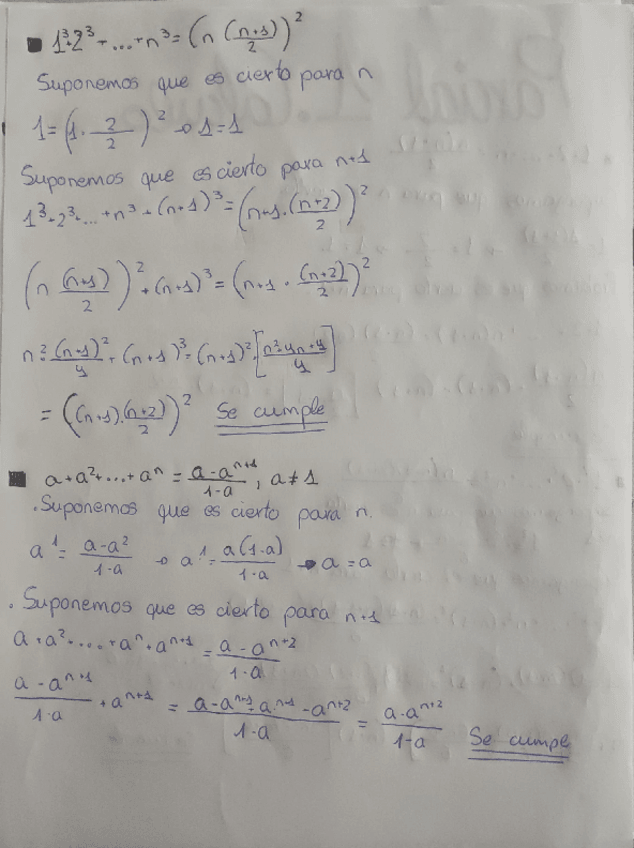 ■ 1³+2³+...+n³=(n (n+1)/2)²
Suponemos que es cierto para n
1=(1· 2/2)² → 1=1
Suponemos que es cierto para n+1
1³+2³+...+n³+(n+1)³=(n+1·(n+2)/2)²
(n (n+1)/2)²+(n+1)³=(n+1·(n+2)/2)²
n²·(n+1)²/4+(n+1)³=(n+1)²·[n²+4n+4/4]
=((n+1)·(n+2)/2)² Se cumple
■ a+a²+...+aⁿ=a-aⁿ⁺¹/1-a, a≠1
·Suponemos que es cierto para n.
a¹=a-a²/1-a → a¹=a(1-a)/1-a → a=a
·Suponemos que es cierto para n+1
a+a²+....+aⁿ+aⁿ⁺¹=a-aⁿ⁺²/1-a
a-aⁿ⁺¹/1-a+aⁿ⁺¹=a-aⁿ⁺¹+aⁿ⁺¹-aⁿ⁺²/1-a=a-aⁿ⁺²/1-a Se cumple